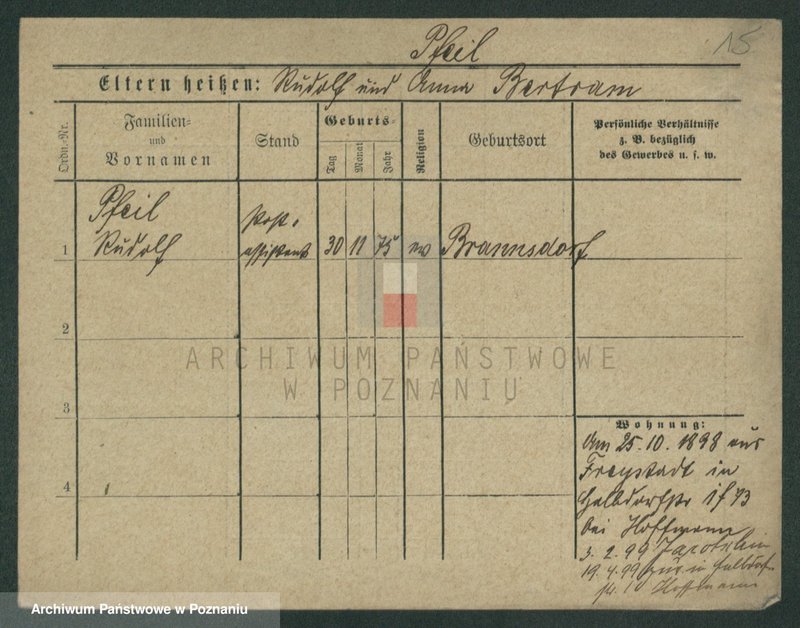 15
Pfeil
Eltern heißen: Rudolf und Anna Bertram
Ordn.-Nr.
Familien-
und
Vornamen
Stand
Geburts-
Tag
Monat
Jahr
Religion
Geburtsort
Persönliche Verhältnisse
z. B. bezüglich
des Gewerbes u. s. w.
Pfeil
Post-
1 Rudolf assistent 30 11 75 ev Braunsdorf
2
ARCHIWUM PAŃSTWOWE
W POZNANIU
3
Wohnung:
Am 25.10.1898 aus
Freystadt in
4
Halbdorfstr
bei Hoffmann
3.2.99 Jarotschin
19.4.99 in Halbdorfstr
Hoffmann
Archiwum Państwowe w Poznaniu